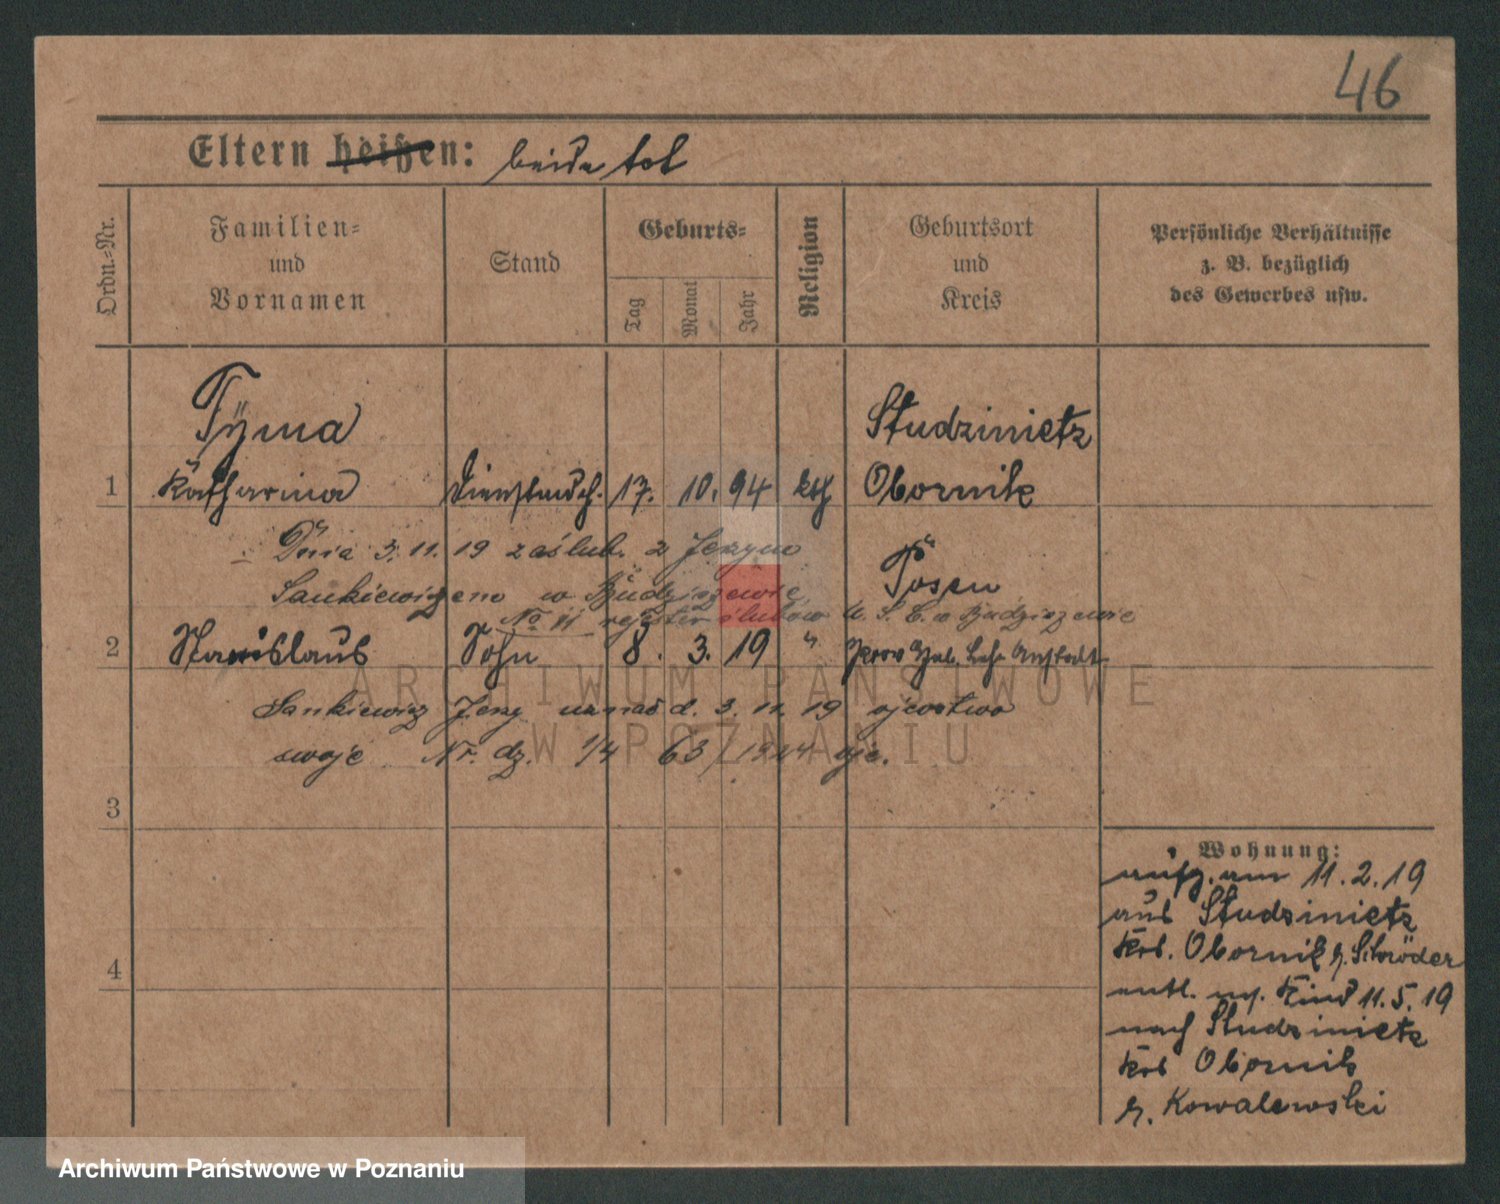 46
Eltern heißen: beide tot
Ordn.-Nr.
Familien-
und
Vornamen
Stand
Geburts-
Tag
Monat
Jahr
Religion
Geburtsort
und
Kreis
Persönliche Verhältnisse
z. B. bezüglich
des Gewerbes usw.
Tÿma
Studzinietz
1 Katharina Dienstmdch. 17. 10. 94 kth Obornik
Dnia 3.11.19 zaślub. z Jerzym
Posen
Sankiewiczem w Budziszewie
No 11 rejestr ślubów U. S. C. w Budziszewie
2 Stanislaus Sohn 8. 3. 19 " Prov Heb. Lehr Anstalt
Sankiewicz Jerzy uznał d. 3. 11. 19 ojcostwo
swoje Nr. dz. 1/4 63/1924 ojc.
3
4
Wohnung:
aufg. am 11.2.19
aus Studzinietz
Krs. Obornik b. Schröder
entl. m. Kind 11.5.19
nach Studzinietz
Krs Obornik
b. Kowalewski
ARCHIWUM PAŃSTWOWE
W POZNANIU
Archiwum Państwowe w Poznaniu